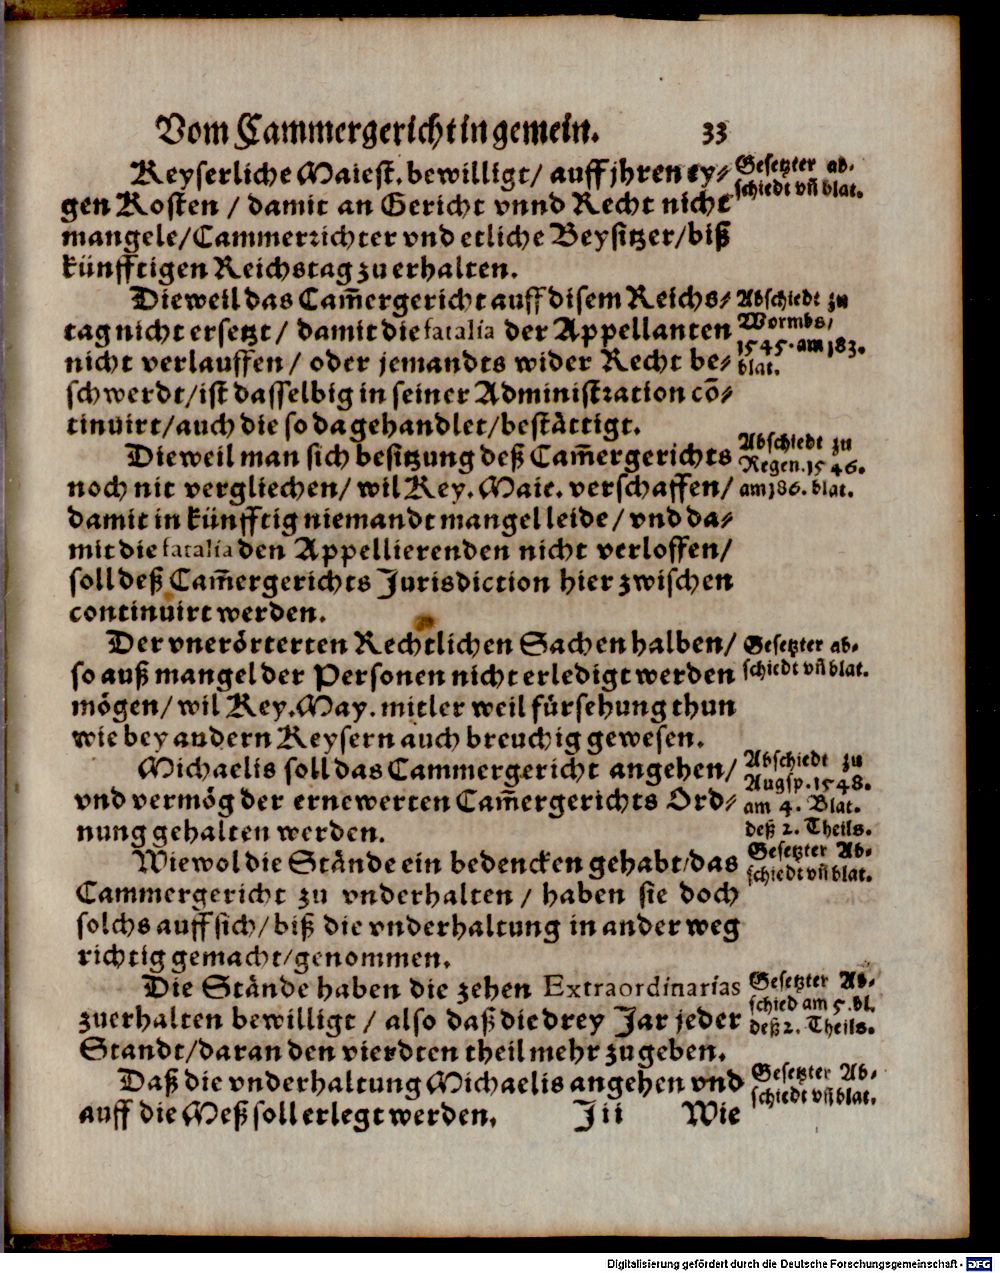 Vom Cammergericht in gemein. 33
Keyserliche Maiest. bewilligt/ auff jhren ey⸗
gen Kosten / damit an Gericht vnnd Recht nicht
mangele/Cammerrichter vnd etliche Beysitzer/biß
künfftigen Reichstag zu erhalten.
Gesetzter ab⸗
schiedt vñ blat.
Dieweil das Cam̃ergericht auff disem Reichs⸗
tag nicht ersetzt/ damit die fatalia der Appellanten
nicht verlauffen/ oder jemandts wider Recht be⸗
schwerdt/ist dasselbig in seiner Administration cõ⸗
tinuirt/auch die so da gehandlet/bestättigt.
Abschiedt zu
Wormbs/
1545. am 183.
blat.
Dieweil man sich besitzung deß Cam̃ergerichts
noch nit vergliechen/ wil Key. Maie. verschaffen/
damit in künfftig niemandt mangel leide/ vnd da⸗
mit die fatalia den Appellierenden nicht verloffen/
soll deß Cam̃ergerichts Jurisdiction hier zwischen
continuirt werden.
Abschiedt zu
Regen. 1546.
am 186. blat.
Der vnerörterten Rechtlichen Sachen halben/
so auß mangel der Personen nicht erledigt werden
mögen/ wil Key. May. mitler weil fürsehung thun
wie bey andern Keysern auch breuchig gewesen.
Gesetzter ab⸗
schiedt vñ blat.
Michaelis soll das Cammergericht angehen/
vnd vermög der ernewerten Cam̃ergerichts Ord⸗
nung gehalten werden.
Abschiedt zu
Augsp. 1548.
am 4. Blat.
deß 2. Theils.
Wiewol die Stände ein bedencken gehabt/das
Cammergericht zu vnderhalten / haben sie doch
solchs auff sich/ biß die vnderhaltung in ander weg
richtig gemacht/genommen.
Gesetzter Ab⸗
schiedt vñ blat.
Die Stände haben die zehen Extraordinarias
zuerhalten bewilligt / also daß die drey Jar jeder
Standt/daran den vierdten theil mehr zu geben.
Gesetzter Ab⸗
schied am 5. bl.
deß 2. Theils.
Daß die vnderhaltung Michaelis angehen vnd
auff die Meß soll erlegt werden. Jii Wie
Gesetzter Ab⸗
schiedt vñ blat.
Digitalisierung gefördert durch die Deutsche Forschungsgemeinschaft - DFG